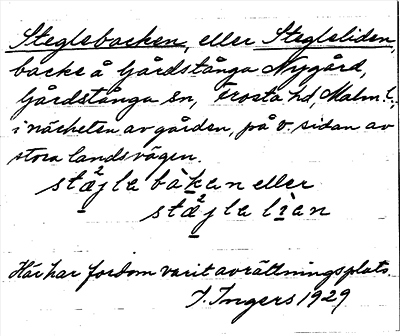 Steglebacken, eller Stegleliden,
backe å Gårdstånga Nygård,
Gårdstånga sn, Frosta hd, Malm. l.,
i närheten av gården, på v. sidan av
stora landsvägen.
stæ̱²jla bàḵan eller
stæ̱²jla lìan
Här har fordom varit avrättningsplats.
I. Ingers 1929